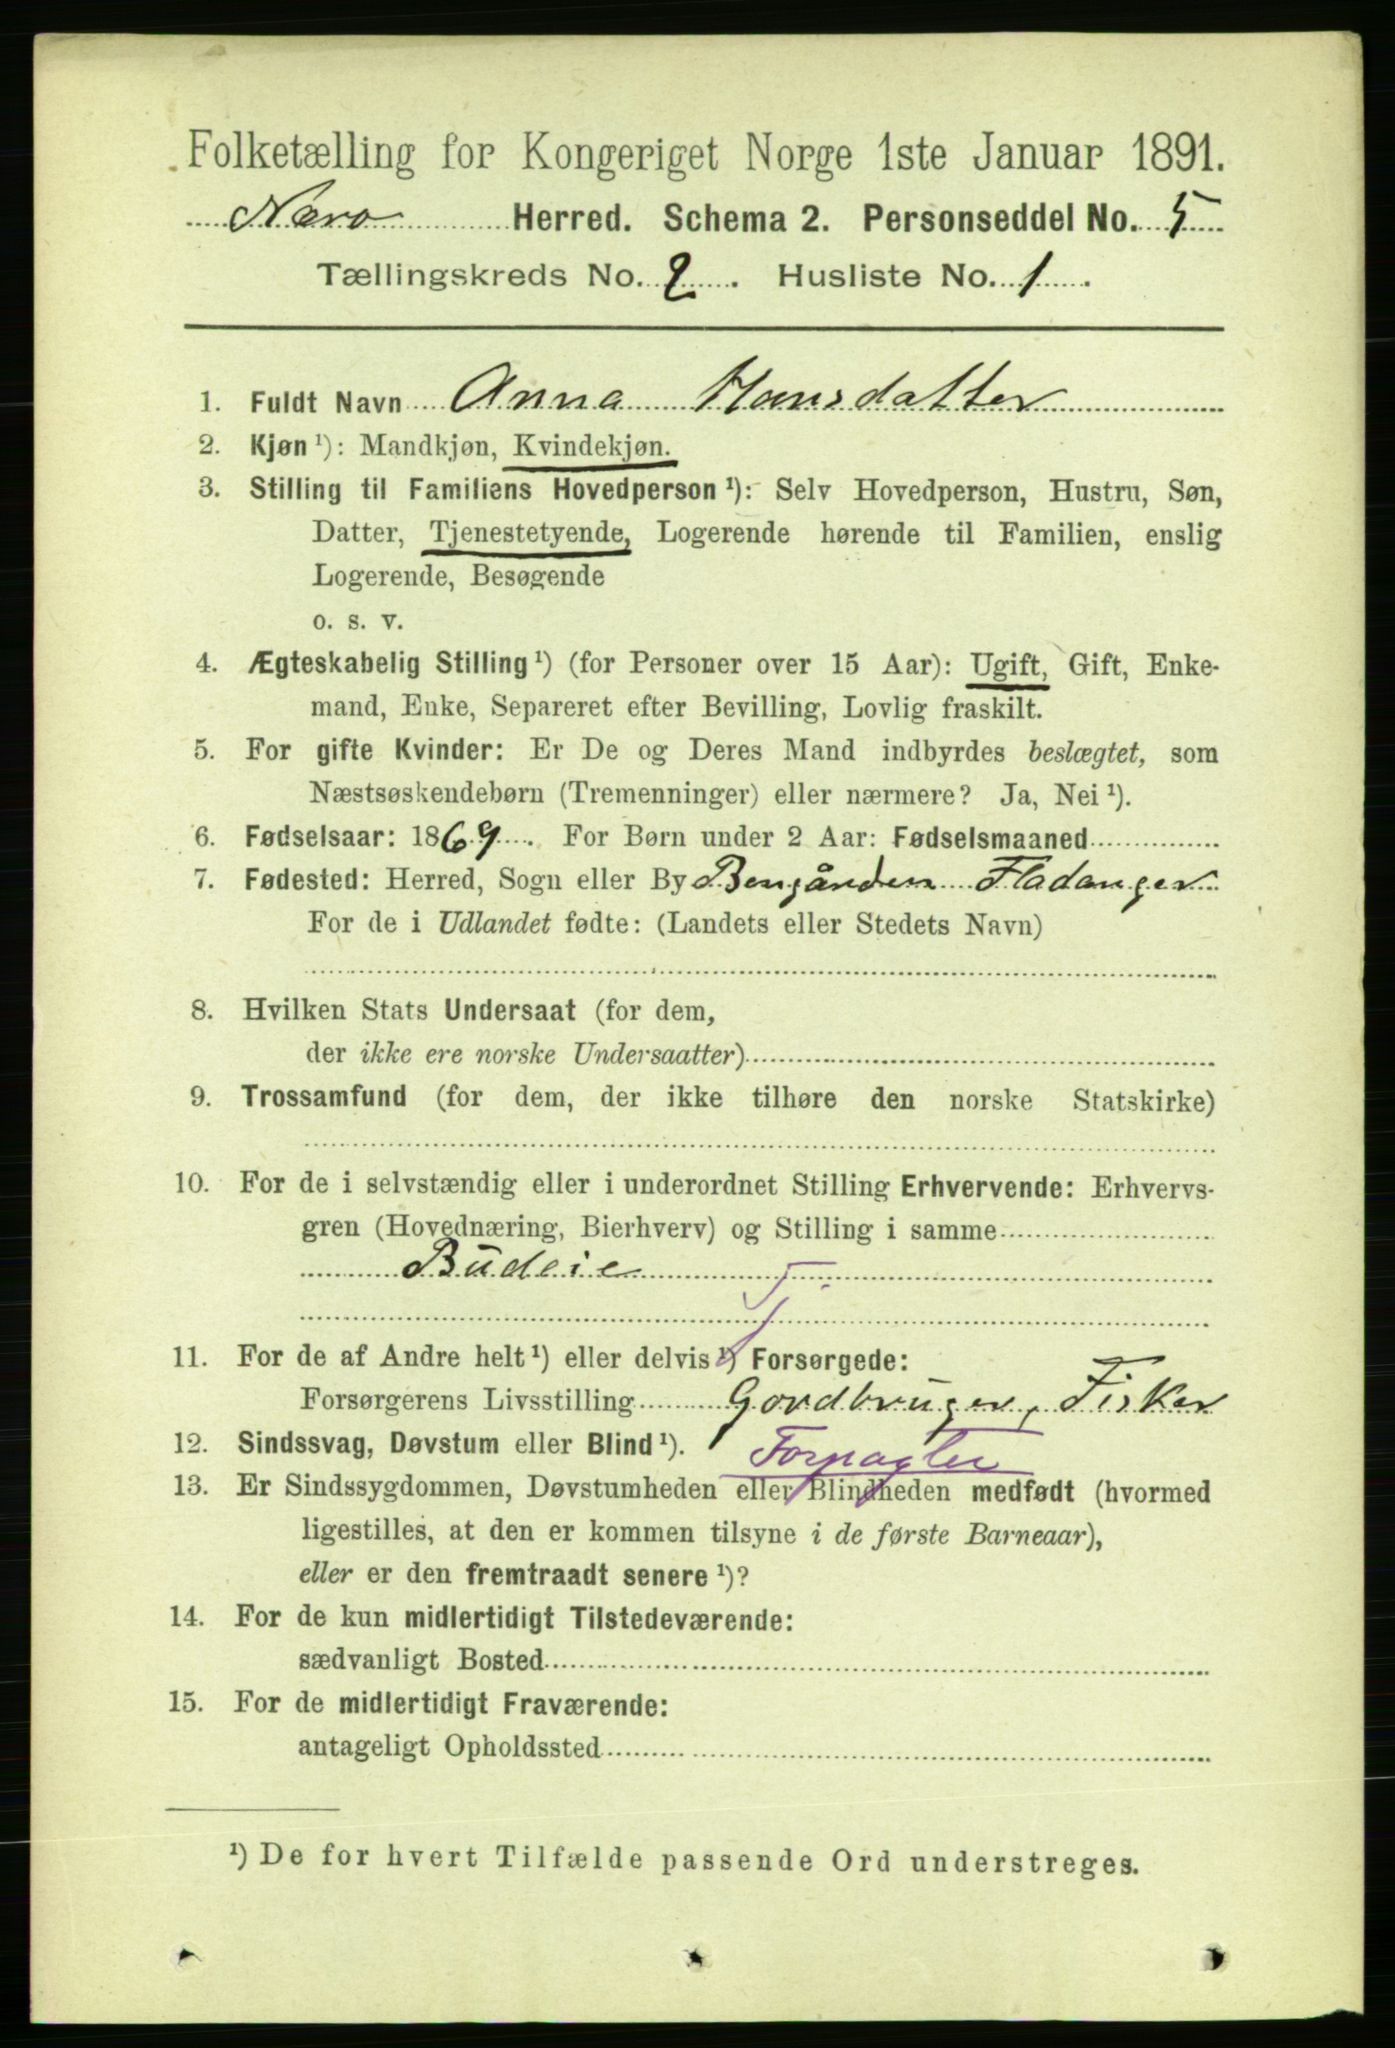 Folketælling for Kongeriget Norge 1ste Januar 1891.
Nærø Herred. Schema 2. Personseddel No. 5
Tællingskreds No. 2. Husliste No. 1.
1. Fuldt Navn Anna Hansdatter
2. Kjøn ¹): Mandkjøn, Kvindekjøn.
3. Stilling til Familiens Hovedperson ¹): Selv Hovedperson, Hustru, Søn,
Datter, Tjenestetyende, Logerende hørende til Familien, enslig
Logerende, Besøgende
o. s. v.
4. Ægteskabelig Stilling ¹) (for Personer over 15 Aar): Ugift, Gift, Enke-
mand, Enke, Separeret efter Bevilling, Lovlig fraskilt.
5. For gifte Kvinder: Er De og Deres Mand indbyrdes beslægtet, som
Næstsøskendebørn (Tremenninger) eller nærmere? Ja, Nei ¹).
6. Fødselsaar: 1869. For Børn under 2 Aar: Fødselsmaaned
7. Fødested: Herred, Sogn eller By Fladanger
For de i Udlandet fødte: (Landets eller Stedets Navn)
8. Hvilken Stats Undersaat (for dem,
der ikke ere norske Undersaatter)
9. Trossamfund (for dem, der ikke tilhøre den norske Statskirke)
10. For de i selvstændig eller i underordnet Stilling Erhvervende: Erhvervs-
gren (Hovednæring, Bierhverv) og Stilling i samme
Budeie
11. For de af Andre helt ¹) eller delvis ¹) Forsørgede:
Forsørgerens Livsstilling Gardbruger, Fisker
12. Sindssvag, Døvstum eller Blind ¹). Forpagter
13. Er Sindssygdommen, Døvstumheden eller Blindheden medfødt (hvormed
ligestilles, at den er kommen tilsyne i de første Barneaar),
eller er den fremtraadt senere ¹)?
14. For de kun midlertidigt Tilstedeværende:
sædvanligt Bosted
15. For de midlertidigt Fraværende:
antageligt Opholdssted
¹) De for hvert Tilfælde passende Ord understreges.